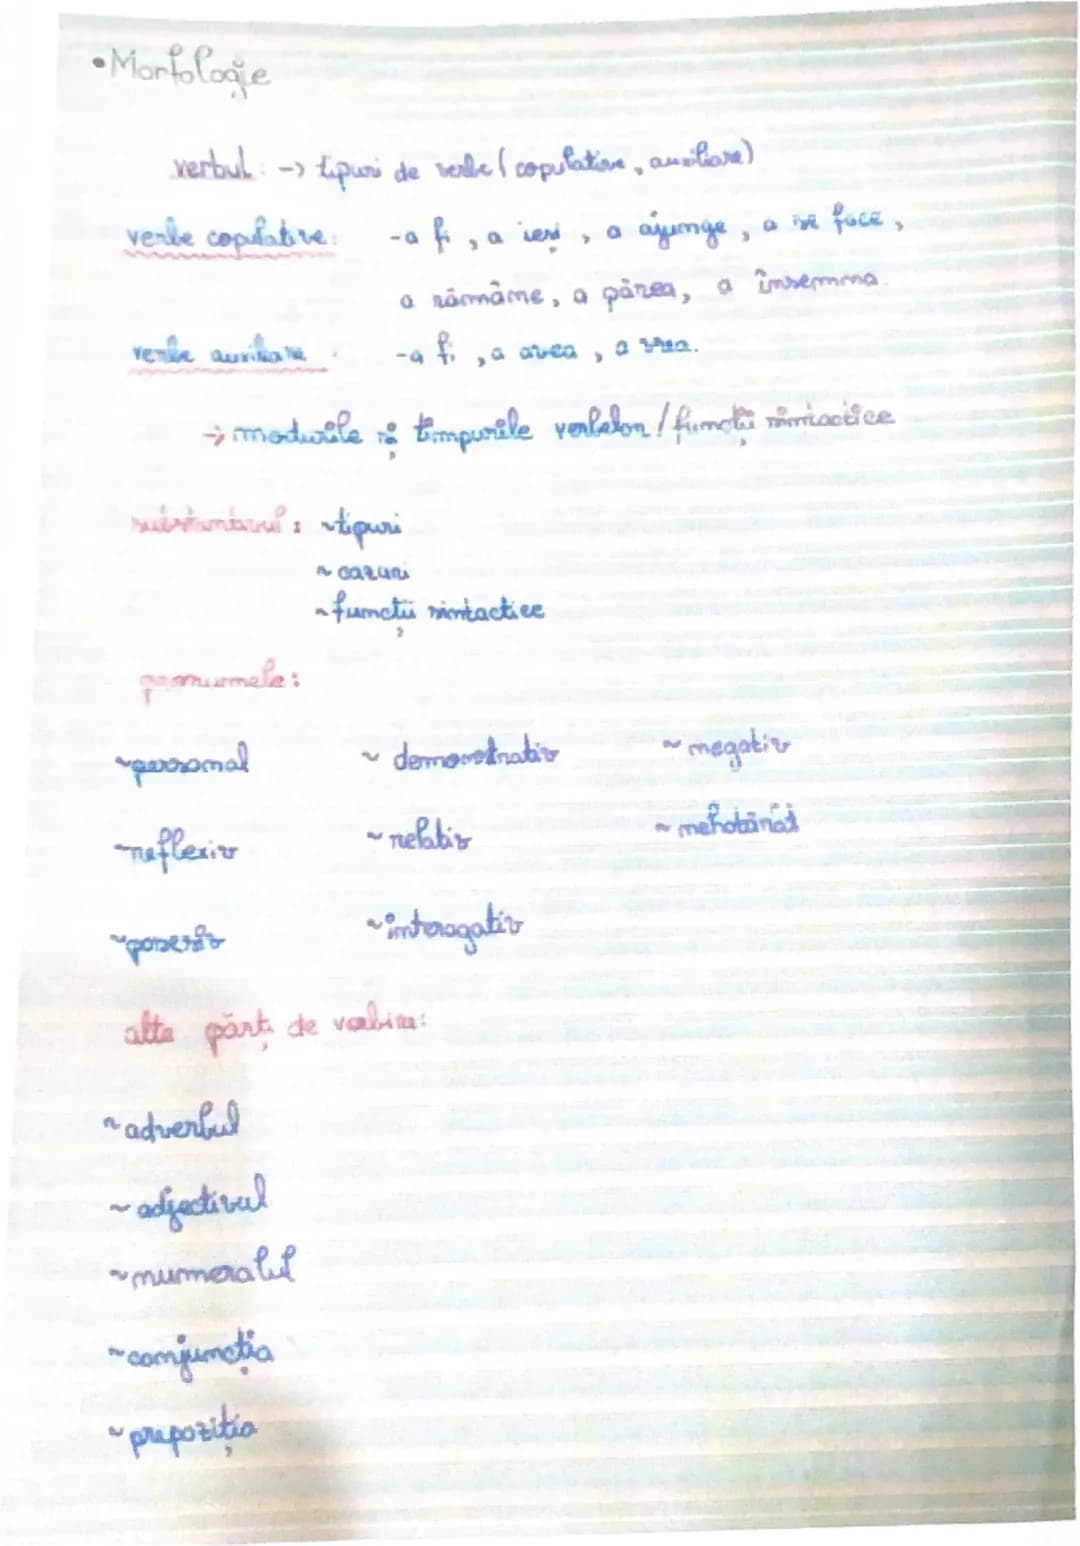 •Morfologie
verbul: -> tipuri de verbe (copulative, auxiliare)
verbe copulative: -a fi, a ieși, a ajunge, a se face,
a rămâne, a părea, a însemna.
verbe auxiliare: -a fi, a avea, a vrea.
-> modurile și timpurile verbelor / funcții sintactice
substantivul: ~tipuri
~ cazuri
~funcții sintactice
pronumele:
~personal ~ demonstrativ ~ negativ
~reflexiv ~ relativ ~ nehotărât
~posesiv ~interogativ
alte părți de vorbire:
~adverbul
~ adjectivul
~numeralul
~conjuncția
~ prepoziția